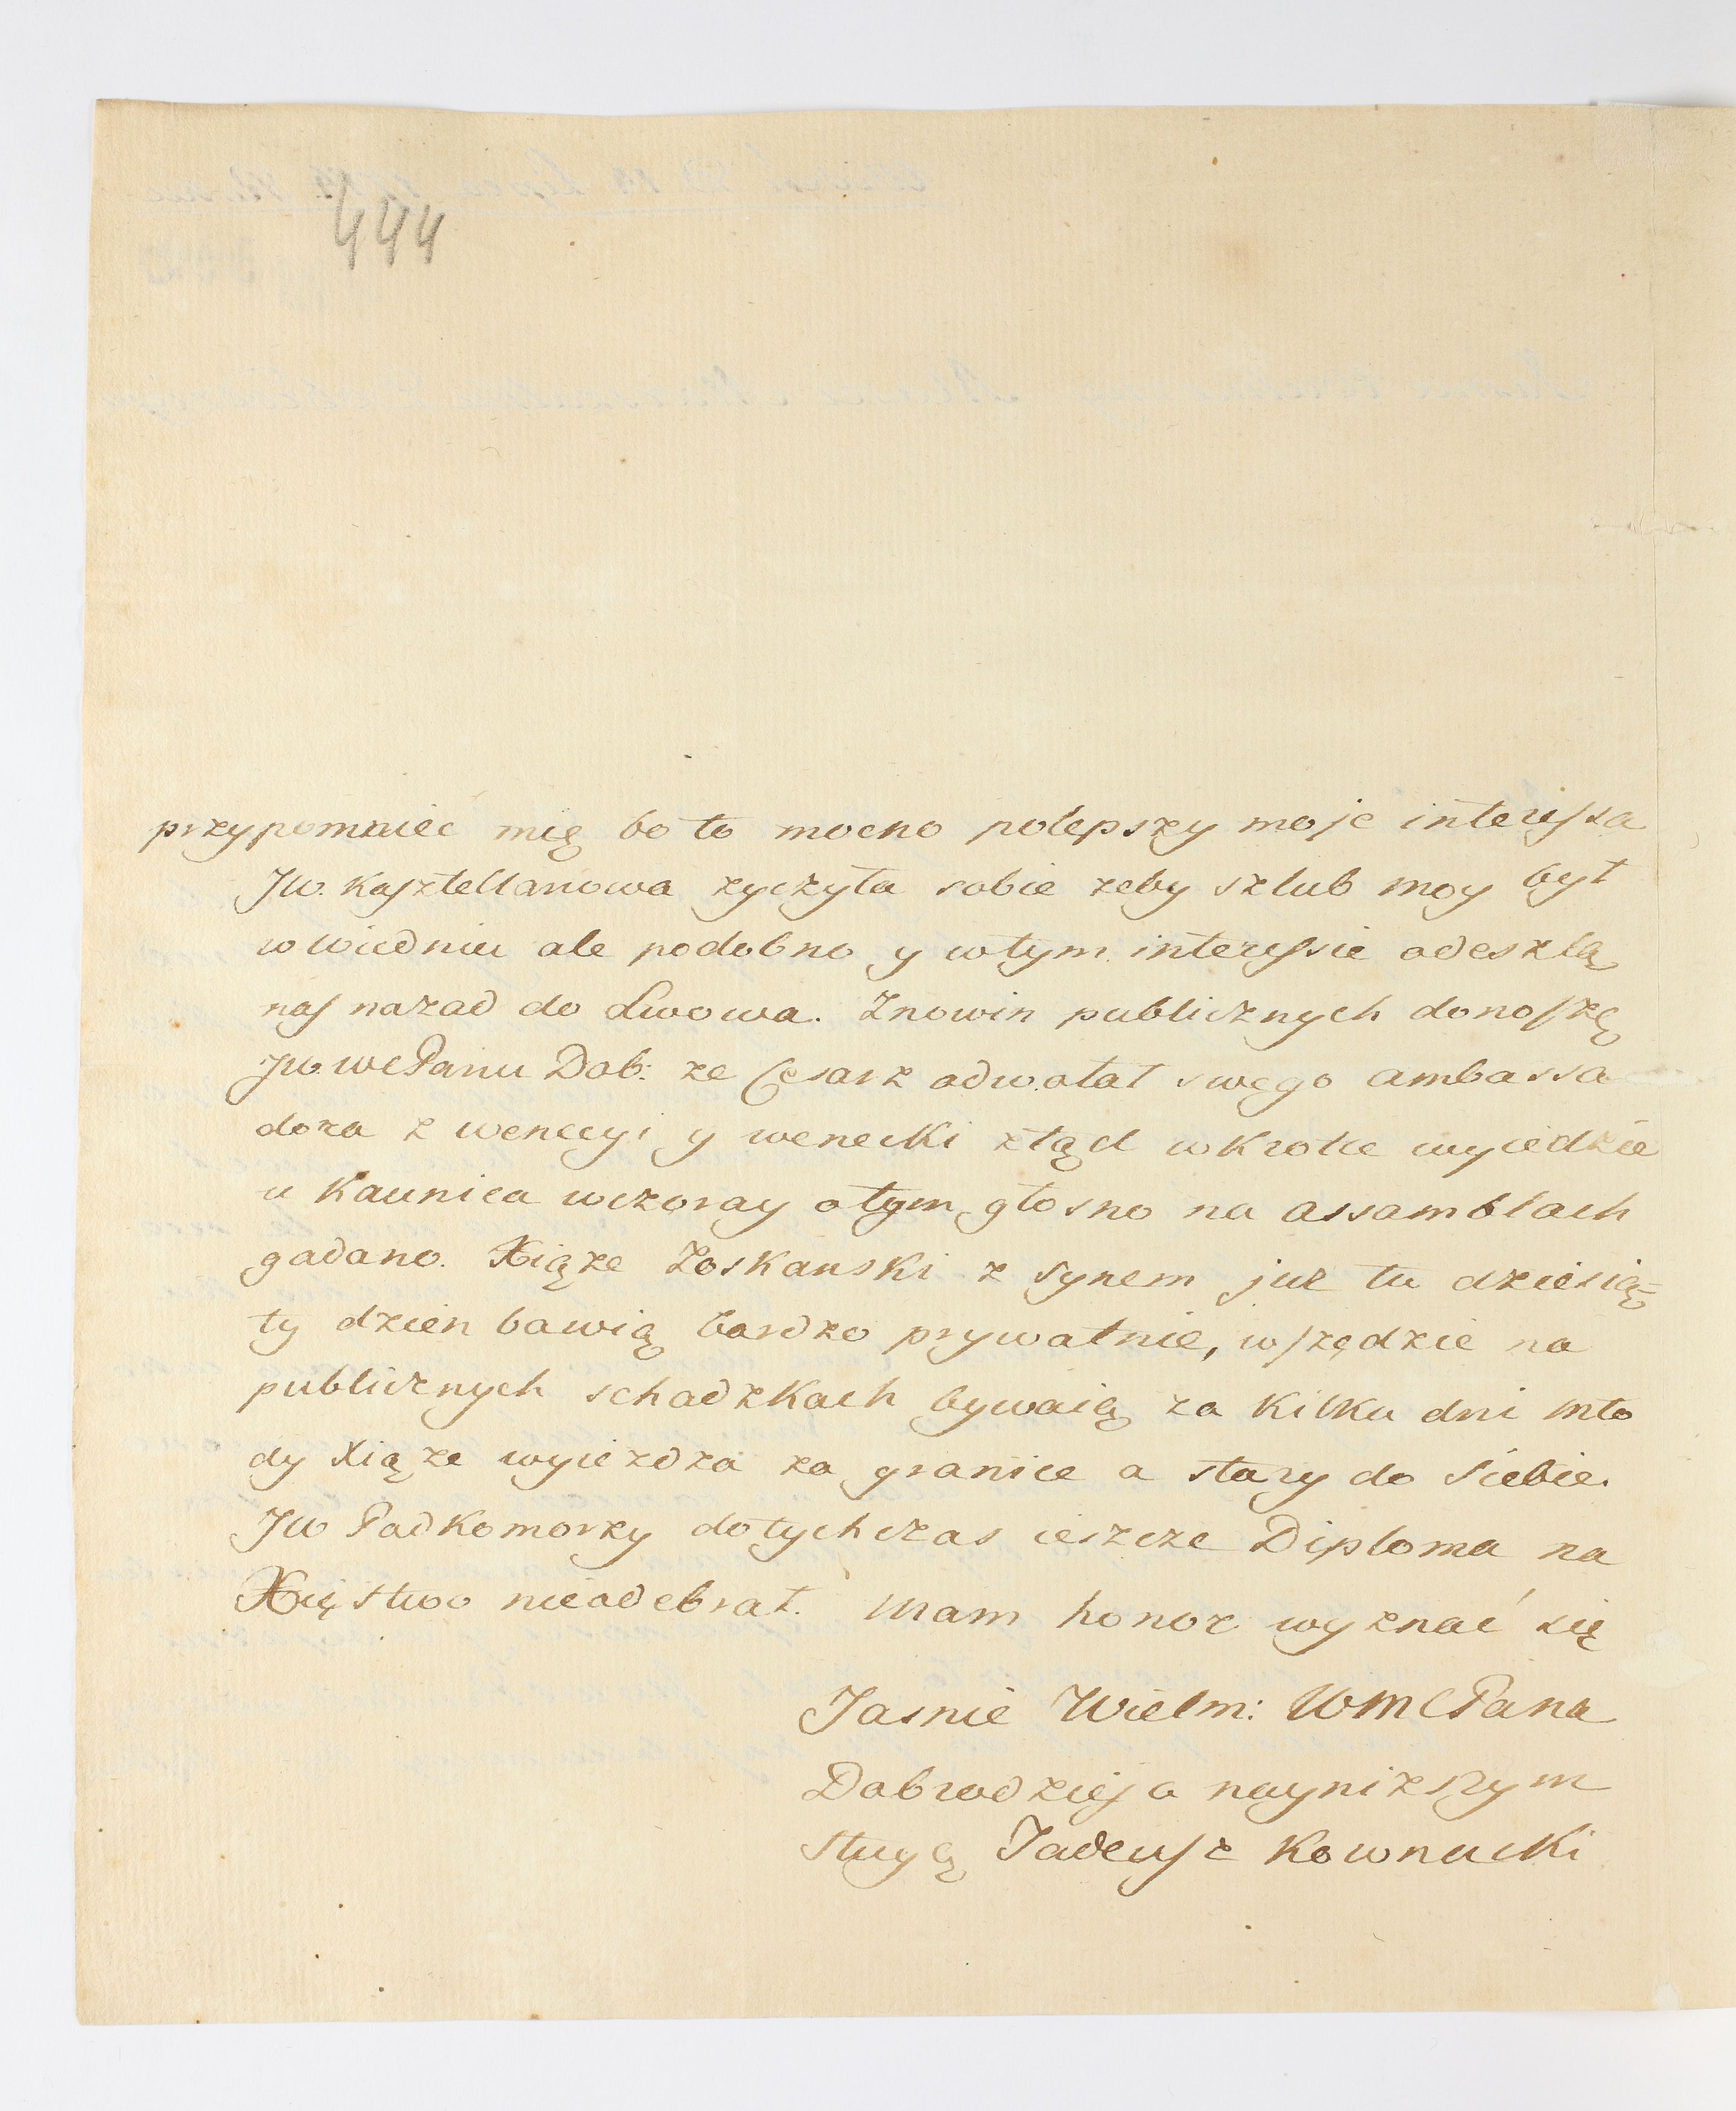 444
przypomnieć mię bo to mocno polepszy moje interessa
JW. Kasztellanowa zyczyła sobie zeby szlub moy był
w Wiedniu ale podobno y wtym interessie odeszlą
nas nazad do Lwowa. Znowin publicznych donoszę
JW. WCPanu Dob: ze Cesarz odwołał swego ambassa
dora z wenecyi y wenecki ztąd wkrotce wyiedzie
u Kaunica wczoray otym głosno na assamblach
gadano. Xiąze Toskanski z synem juz tu dziesią=
ty dzien bawią bardzo prywatnie, wszędzie na
publicznych schadzkach bywaią za kilku dni mło
dy Xiąze wyiezdza za granice a stary do siebie.
JW Podkomorzy dotychczas ieszcze Diploma na
Xięstwo nieodebrał. Mam honor wyznać się
Jasnie Wielm: WMCPana
Dobrodzieja naynizszym
sługą Tadeusz Kownacki